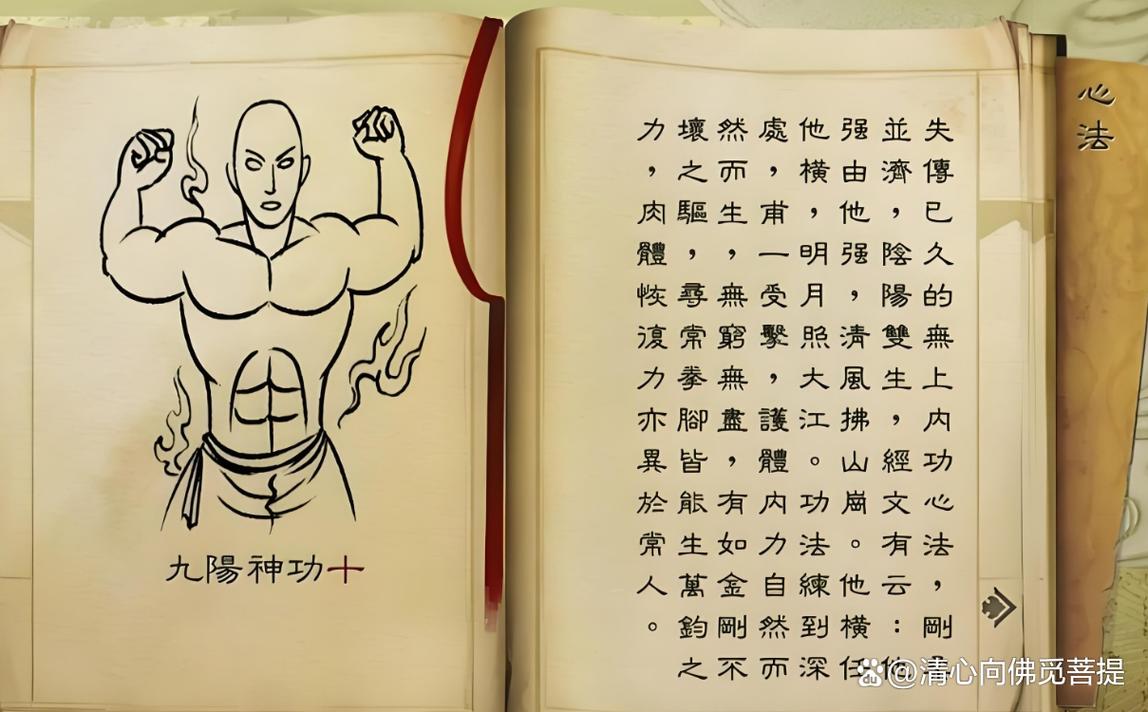 心法
失傳已久的無上内功心法，剛
並濟，陰陽雙生，經文有云：他
强由他强，清風拂山崗。他橫任
他橫，明月照大江。功法練到深
處，甫一受擊，護體内力自然而
然而生，無窮無盡，有如金剛不
壞之驅，尋常拳腳皆能生萬鈞之
力，肉體恢復力亦異於常人。
九陽神功十
@清心向佛觅菩提